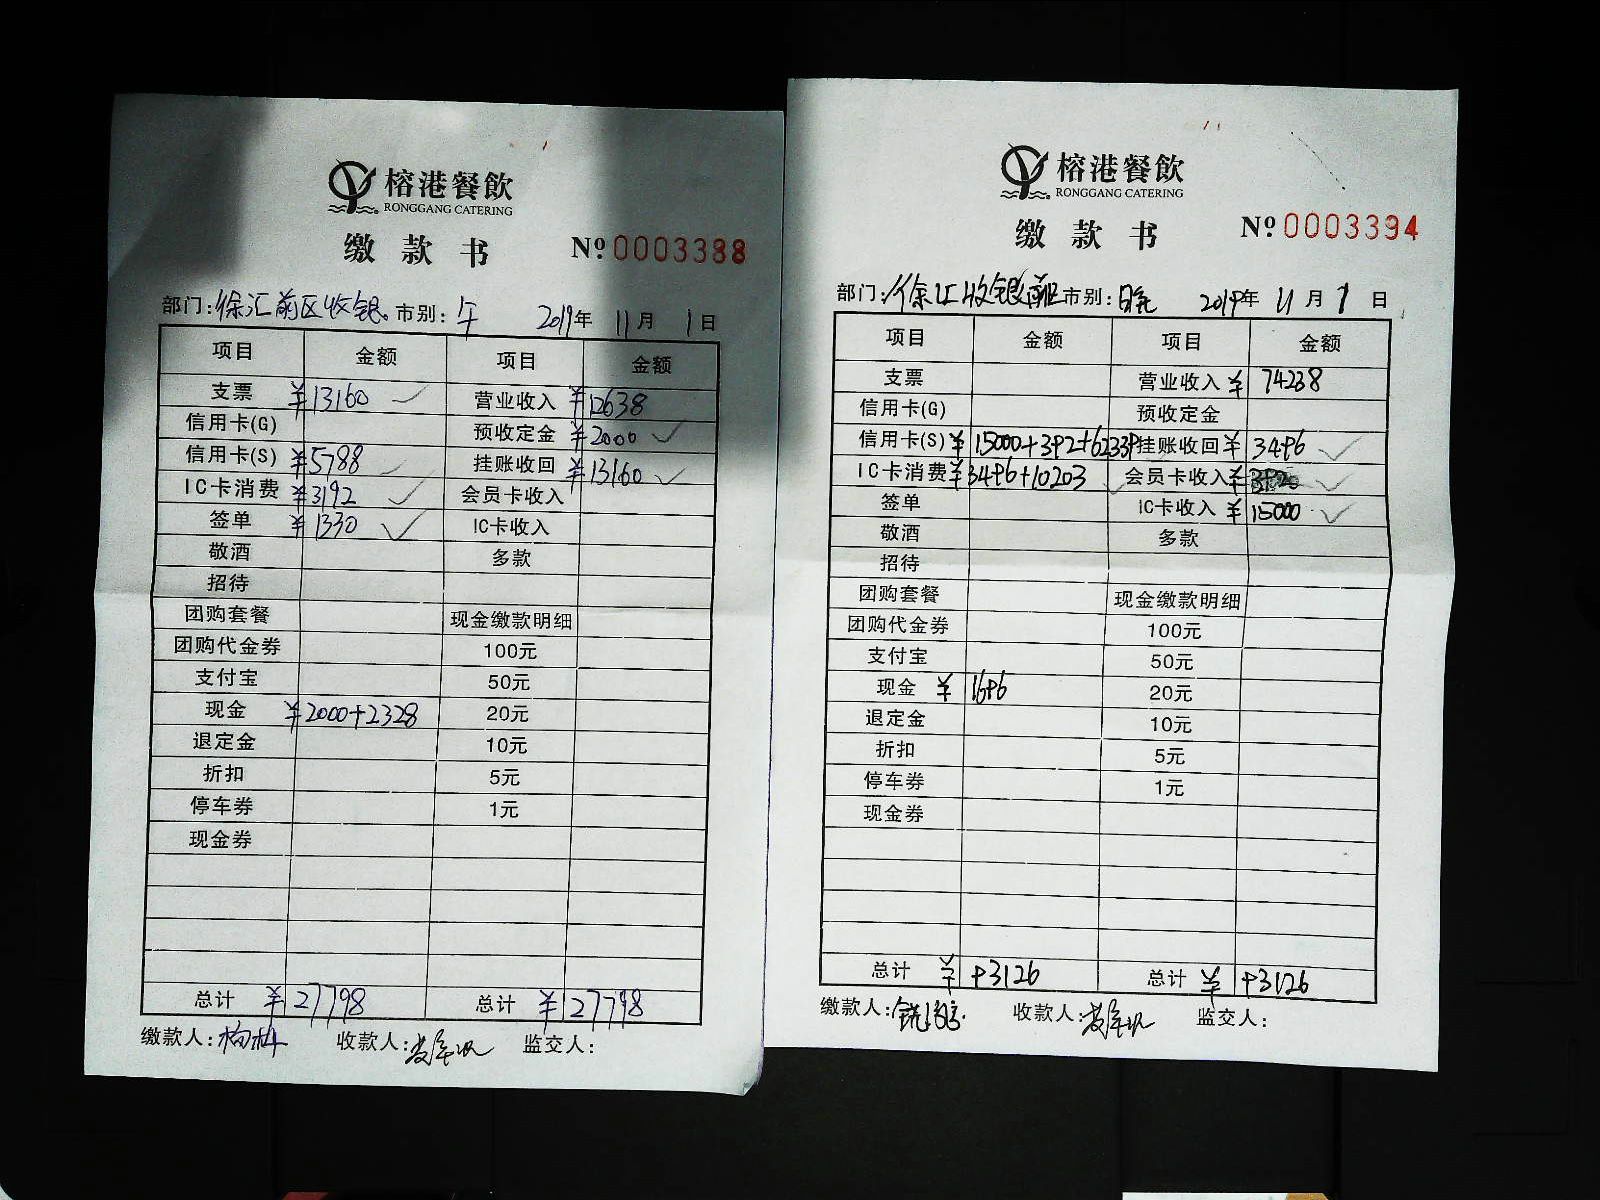 榕港餐飲
RONGGANG CATERING
缴款书
№ 0003388
部门:徐汇前区收银 市别:午 2019年 11月 1日
项目 金额 项目 金额
支票 ¥13160 营业收入 ¥12638
信用卡(G) 预收定金 ¥2000
信用卡(S) ¥5788 挂账收回 ¥13160
IC卡消费 ¥3192 会员卡收入
签单 ¥1330 IC卡收入
敬酒 多款
招待
团购套餐 现金缴款明细
团购代金券 100元
支付宝 50元
现金 ¥2000+2328 20元
退定金 10元
折扣 5元
停车券 1元
现金券
总计 ¥27798 总计 ¥27798
缴款人: 收款人: 监交人:
榕港餐飲
RONGGANG CATERING
缴款书
№ 0003394
部门:徐汇收银前区 市别: 2019年 11月 1日
项目 金额 项目 金额
支票 营业收入 ¥74238
信用卡(G) 预收定金
信用卡(S) ¥15000+392+62339 挂账收回 ¥3496
IC卡消费 ¥3496+10203 会员卡收入 ¥
签单 IC卡收入 ¥15000
敬酒 多款
招待
团购套餐 现金缴款明细
团购代金券 100元
支付宝 50元
现金 ¥1696 20元
退定金 10元
折扣 5元
停车券 1元
现金券
总计 ¥ 总计 ¥
缴款人: 收款人: 监交人: